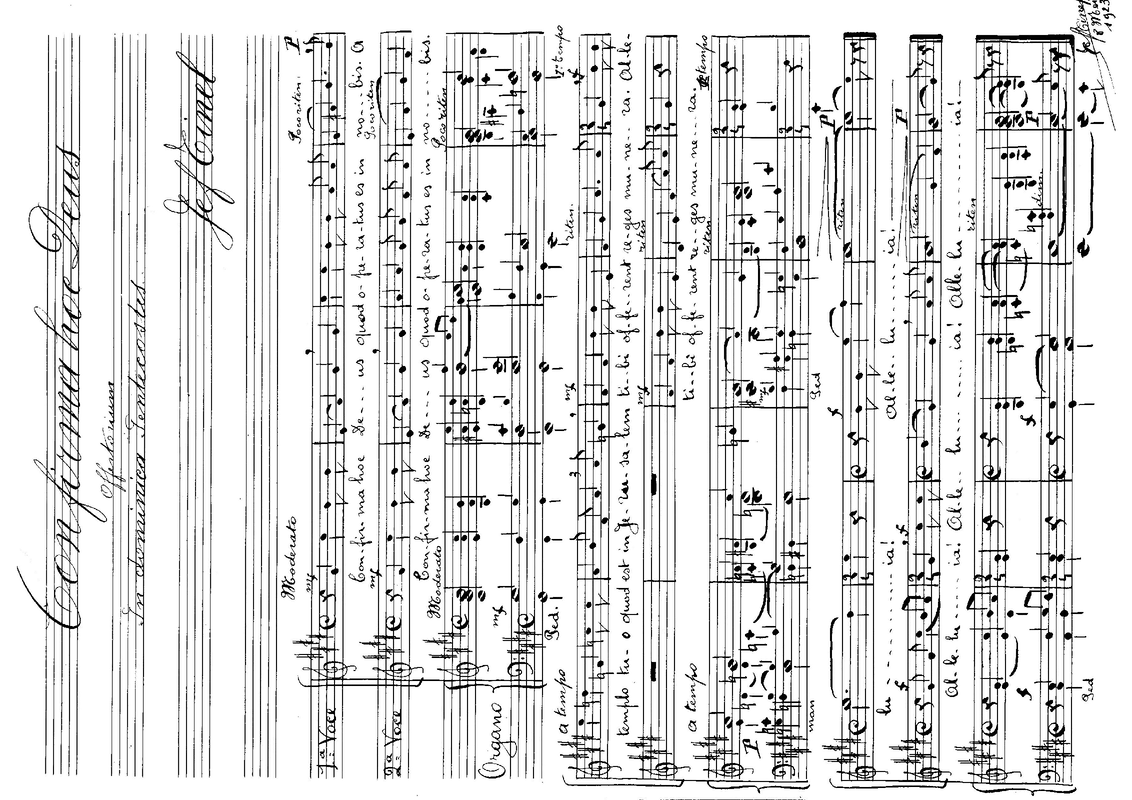 Confirma hoc Deus
Offertorium
In dominica Pentecostes.
Jef Tinel
Moderato
Poco riten. P
1a Voce
mf
Con-fir-ma hoc De--- us quod o-pe-ra-tus es in no---- bis. A
Poco riten
2a Voce
mf
Con-fir-ma hoc De--- us quod o-pe-ra-tus es in no----- bis.
Moderato
Poco riten
Organo
mf
Ped.
a tempo
mf
riten.
a tempo
templo tu-o quod est in Je-ru-sa-lem ti-bi of-fe-rent re-ges mu-ne-ra. Al-le-
mf
riten
ti-bi of-fe-rent re-ges mu-ne-ra.
a tempo
riten
a tempo
P
mf
man
Ped
f
riten
P
lu---------ia!
Al-le-lu-----ia!
f
f
riten
P
Al-le-lu---ia! Al-le-lu----ia! Alle-lu--------ia!
riten
f
f
dim.
P
Ped
1923